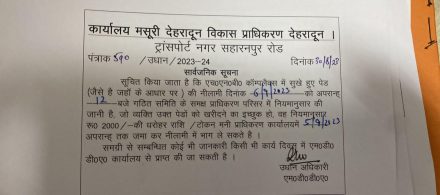 कार्यालय मसूरी देहरादून विकास प्राधिकरण देहरादून ।
ट्रांसपोर्ट नगर सहारनपुर रोड
पत्रांक 590 /उधान/2023-24 दिनांक 30/8/23
सार्वजनिक सूचना
सूचित किया जाता है कि एच०एन०बी० कॉम्पलेक्स में सुखे हुए पेड
(जैसे है जहाँ के आधार पर ) की नीलामी दिनांक 6/9/2023 को अपरान्ह
12 बजे गठित समिति के समक्ष प्राधिकरण परिसर में नियमानुसार की
जानी है, जो व्यक्ति उक्त पेडों को खरीदने का इच्छुक हो, वह नियमानुसार
रू0 2000/-की धरोहर राशि /टोकन मनी प्राधिकरण कार्यालयमें 5/9/2023
अपरान्ह तक जमा कर नीलामी में भाग ले सकते है ।
समग्री से सम्बन्धित कोई भी जानकारी किसी भी कार्य दिवस में एम०डी०
डी०ए० कार्यालय से प्राप्त की जा सकती है ।
उधान अधिकारी
एम०डी०डी०ए०